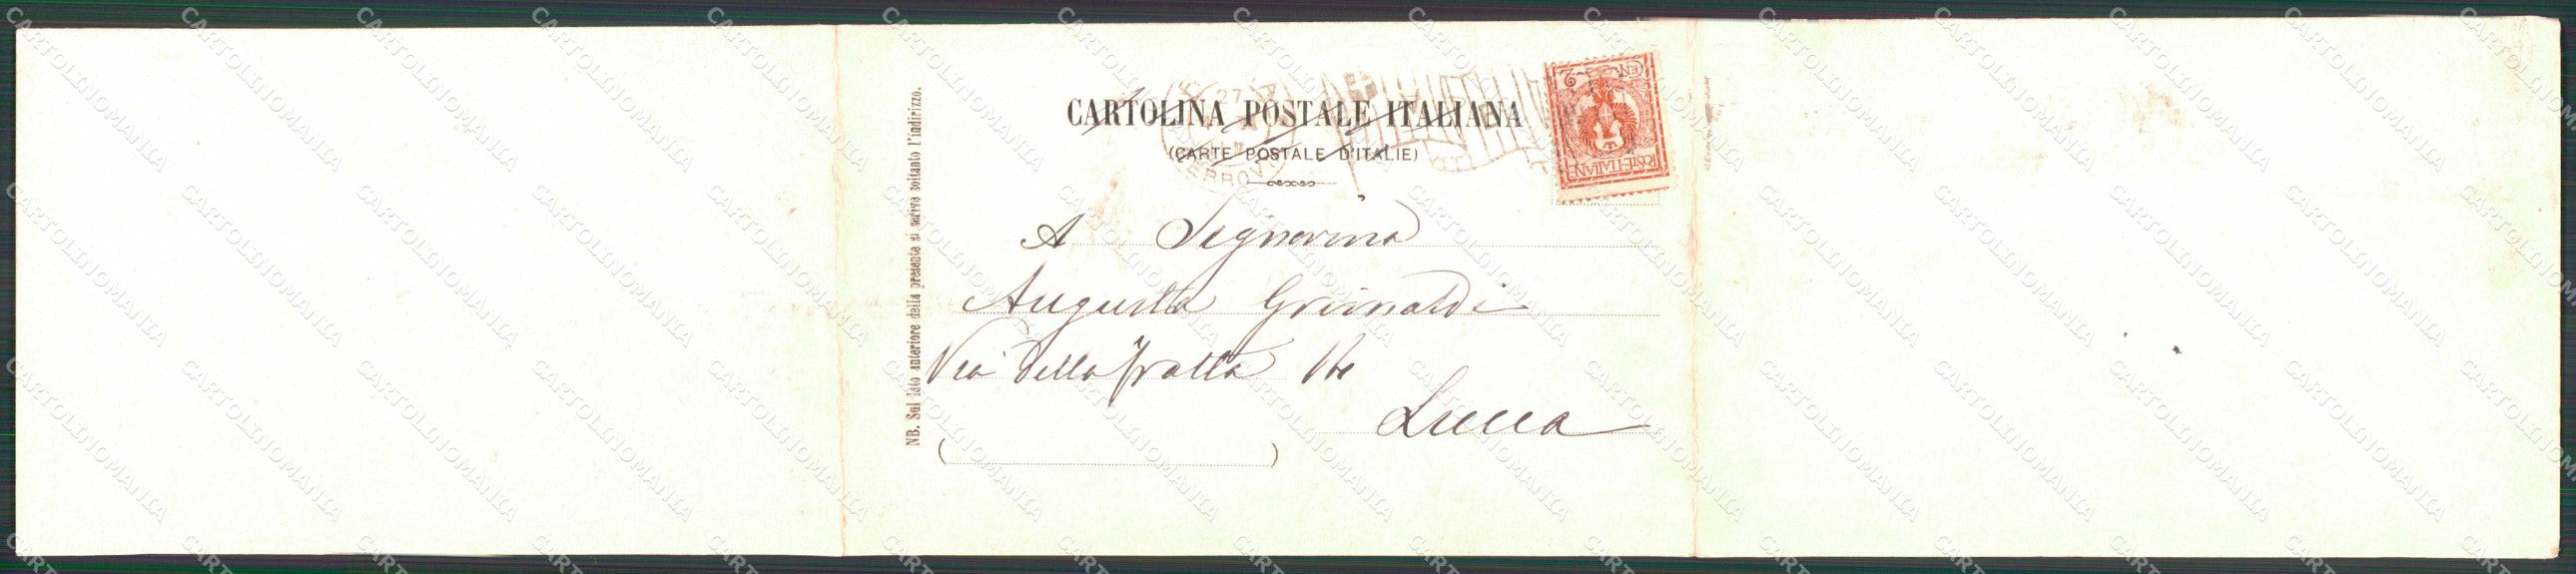 CARTOLINA POSTALE ITALIANA
(CARTE POSTALE D'ITALIE)
CEN. 2
POSTE·ITALIANE
NB. Sul lato anteriore della presente si scrive soltanto l'indirizzo.
A Signorina
Augusta Grimaldi
Via della fratta
Lucca
CARTOLINOMANIA